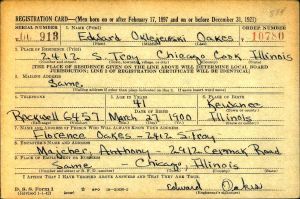 REGISTRATION CARD—(Men born on or after February 17, 1897 and on or before December 31, 1921)
SERIAL NUMBER 1. NAME (Print) ORDER NUMBER
913 Edward Oakes 10780
(First) (Middle) (Last)
2. PLACE OF RESIDENCE (Print)
2412 S Troy Chicago Cook Illinois
(Number and street) (Town, township, village, or city) (County) (State)
[THE PLACE OF RESIDENCE GIVEN ON THE LINE ABOVE WILL DETERMINE LOCAL BOARD
JURISDICTION; LINE 2 OF REGISTRATION CERTIFICATE WILL BE IDENTICAL]
3. MAILING ADDRESS
Same
4. TELEPHONE 5. AGE IN YEARS 6. PLACE OF BIRTH
41 Kewanee
DATE OF BIRTH
Rockwell 6457 March 27 1900 Illinois
7. NAME AND ADDRESS OF PERSON WHO WILL ALWAYS KNOW YOUR ADDRESS
Florence Oakes - 2412 S Troy
8. EMPLOYER'S NAME AND ADDRESS
Majcher Anthony - 2912 Cermak Road
9. PLACE OF EMPLOYMENT OR BUSINESS
Same - Chicago, Illinois
I AFFIRM THAT I HAVE VERIFIED ABOVE ANSWERS AND THAT THEY ARE TRUE.
D. S. S. Form 1
Edward Oakes